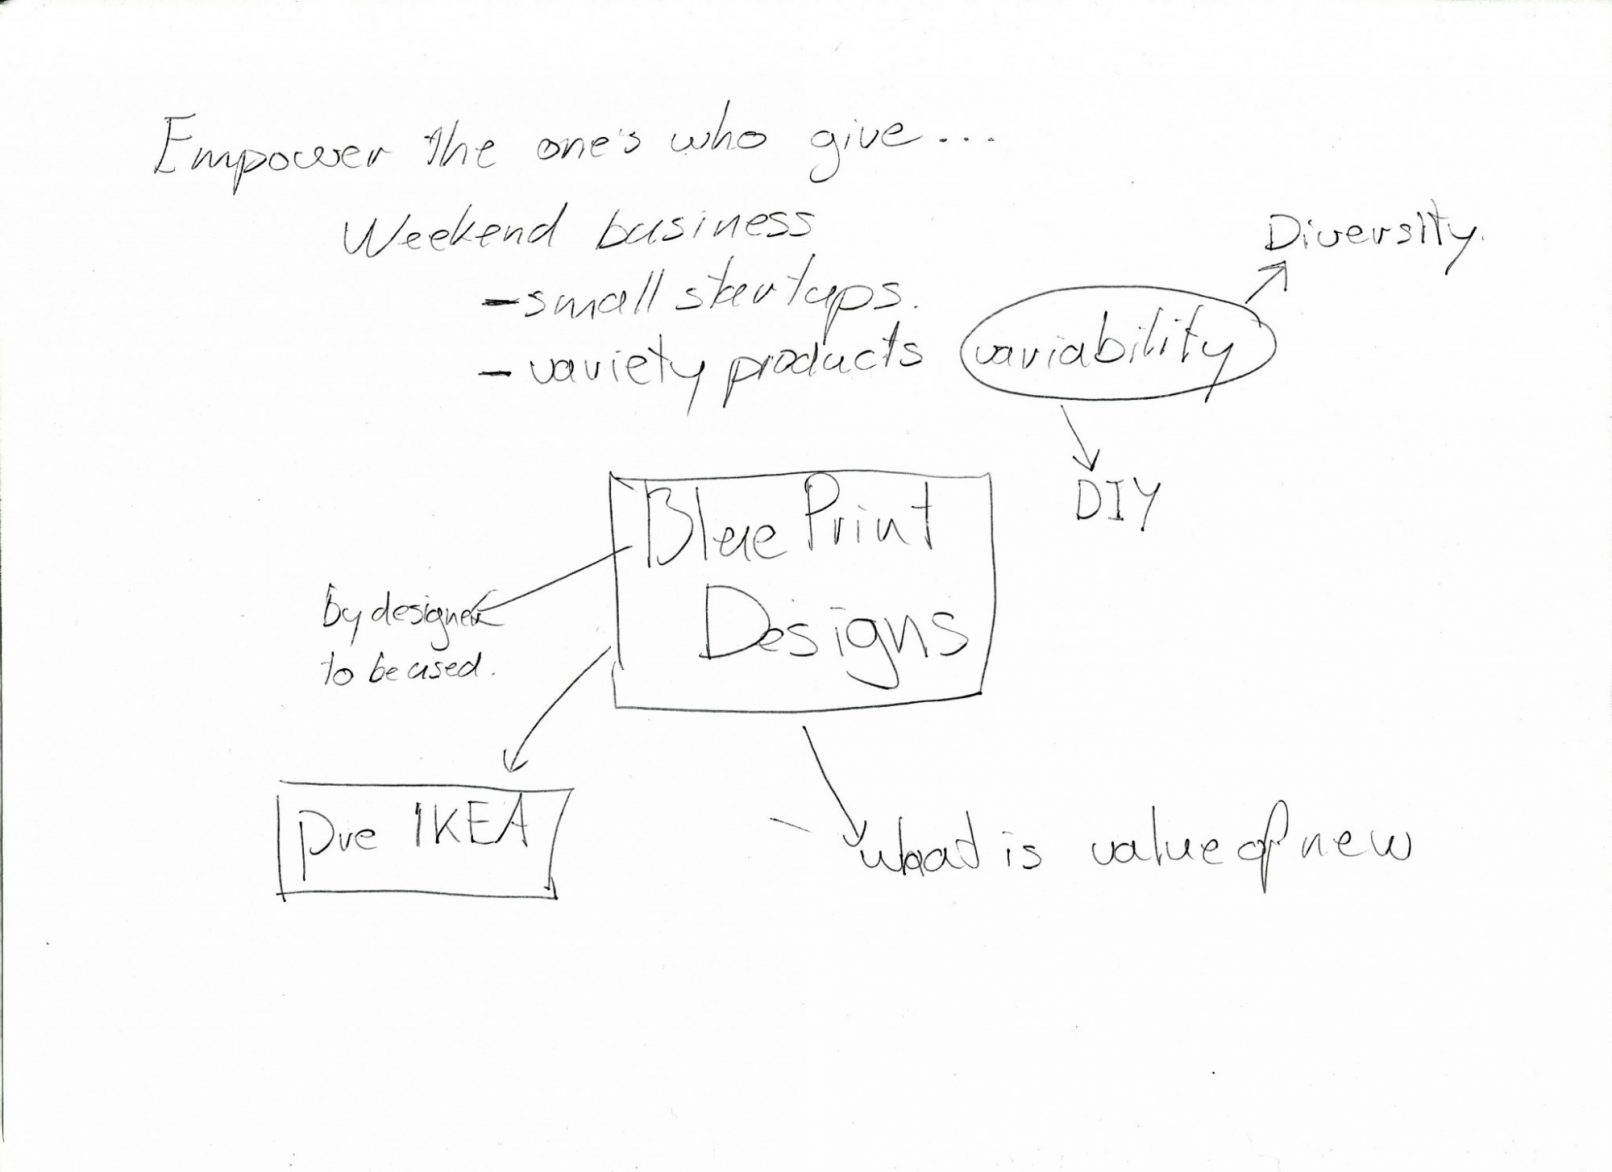 Empower the one's who give...
Weekend business
- small startups.
- variety products
variability
Diversity.
DIY
Blue Print
Designs
by designer
to be used.
pre IKEA
what is value of new